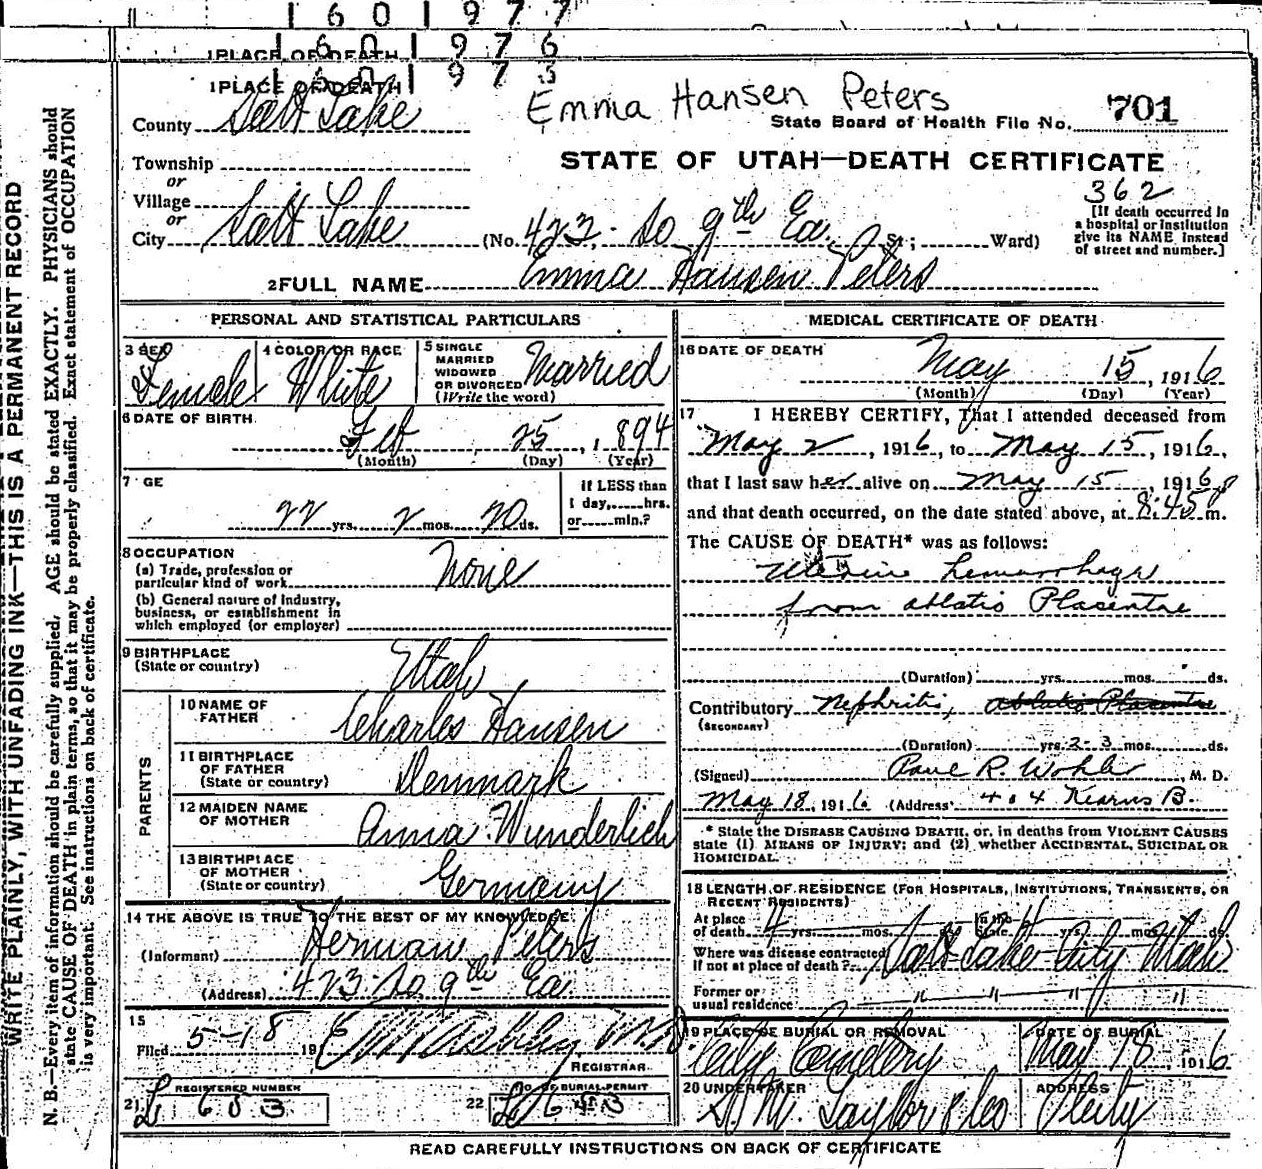 1 6 0 1 9 7 7
1 6 0 1 9 7 6
1 PLACE OF DEATH
1 6 0 1 9 7 3
1 PLACE OF DEATH
County Salt Lake
Emma Hansen Peters
State Board of Health File No. 701
Township
or
Village
or
City Salt Lake
STATE OF UTAH—DEATH CERTIFICATE
362
(No. 423 So 9th Ea. St.; Ward)
[If death occurred in
a hospital or institution
give its NAME instead
of street and number.]
2 FULL NAME Emma Hansen Peters
PERSONAL AND STATISTICAL PARTICULARS
3 SEX Female
4 COLOR OR RACE White
5 SINGLE
MARRIED
WIDOWED
OR DIVORCED
(Write the word) Married
6 DATE OF BIRTH
Feb 25, 1894
(Month) (Day) (Year)
7 GE
22 yrs. 2 mos. 20 ds.
if LESS than
1 day, hrs.
or min.?
8 OCCUPATION
(a) Trade, profession or
particular kind of work None
(b) General nature of Industry,
business, or establishment in
which employed (or employer)
9 BIRTHPLACE
(State or country) Utah
PARENTS
10 NAME OF
FATHER Charles Hansen
11 BIRTHPLACE
OF FATHER
(State or country) Denmark
12 MAIDEN NAME
OF MOTHER Anna Wunderlich
13 BIRTHPLACE
OF MOTHER
(State or country) Germany
14 THE ABOVE IS TRUE TO THE BEST OF MY KNOWLEDGE
(Informant) Herman Peters
(Address) 423 So 9th Ea
15
Filed 5-18 1916 M.D.
REGISTRAR
21 REGISTERED NUMBER
L 653
22 NO OF BURIAL PERMIT
L 653
MEDICAL CERTIFICATE OF DEATH
16 DATE OF DEATH
May 15, 1916
(Month) (Day) (Year)
17 I HEREBY CERTIFY, That I attended deceased from
May 2, 1916, to May 15, 1916,
that I last saw her alive on May 15, 1916
and that death occurred, on the date stated above, at 8:45 p m.
The CAUSE OF DEATH* was as follows:
Uterine hemorrhage
from ablatio Placentae
(Duration) yrs. mos. ds.
Contributory Nephritis, ablatio Placentae
(SECONDARY)
(Duration) yrs. 2-3 mos. ds.
(Signed) Paul R. , M. D.
May 18, 1916 (Address 404 Kearns B.
* State the DISEASE CAUSING DEATH, or, in deaths from VIOLENT CAUSES
state (1) MEANS OF INJURY; and (2) whether ACCIDENTAL, SUICIDAL OR
HOMICIDAL.
18 LENGTH OF RESIDENCE (FOR HOSPITALS, INSTITUTIONS, TRANSIENTS, OR
RECENT RESIDENTS)
At place
of death 4 yrs. mos. ds. In the State yrs. mos. ds.
Where was disease contracted
if not at place of death? Salt Lake City Utah
Former or
usual residence " " " "
19 PLACE OF BURIAL OR REMOVAL
City Cemetery
DATE OF BURIAL
May 18 1916
20 UNDERTAKER
S. M. Taylor & Co
ADDRESS
City
READ CAREFULLY INSTRUCTIONS ON BACK OF CERTIFICATE
WRITE PLAINLY, WITH UNFADING INK—THIS IS A PERMANENT RECORD
N. B.—Every item of information should be carefully supplied. AGE should be stated EXACTLY. PHYSICIANS should
state CAUSE OF DEATH in plain terms, so that it may be properly classified. Exact statement of OCCUPATION
is very important. See instructions on back of certificate.